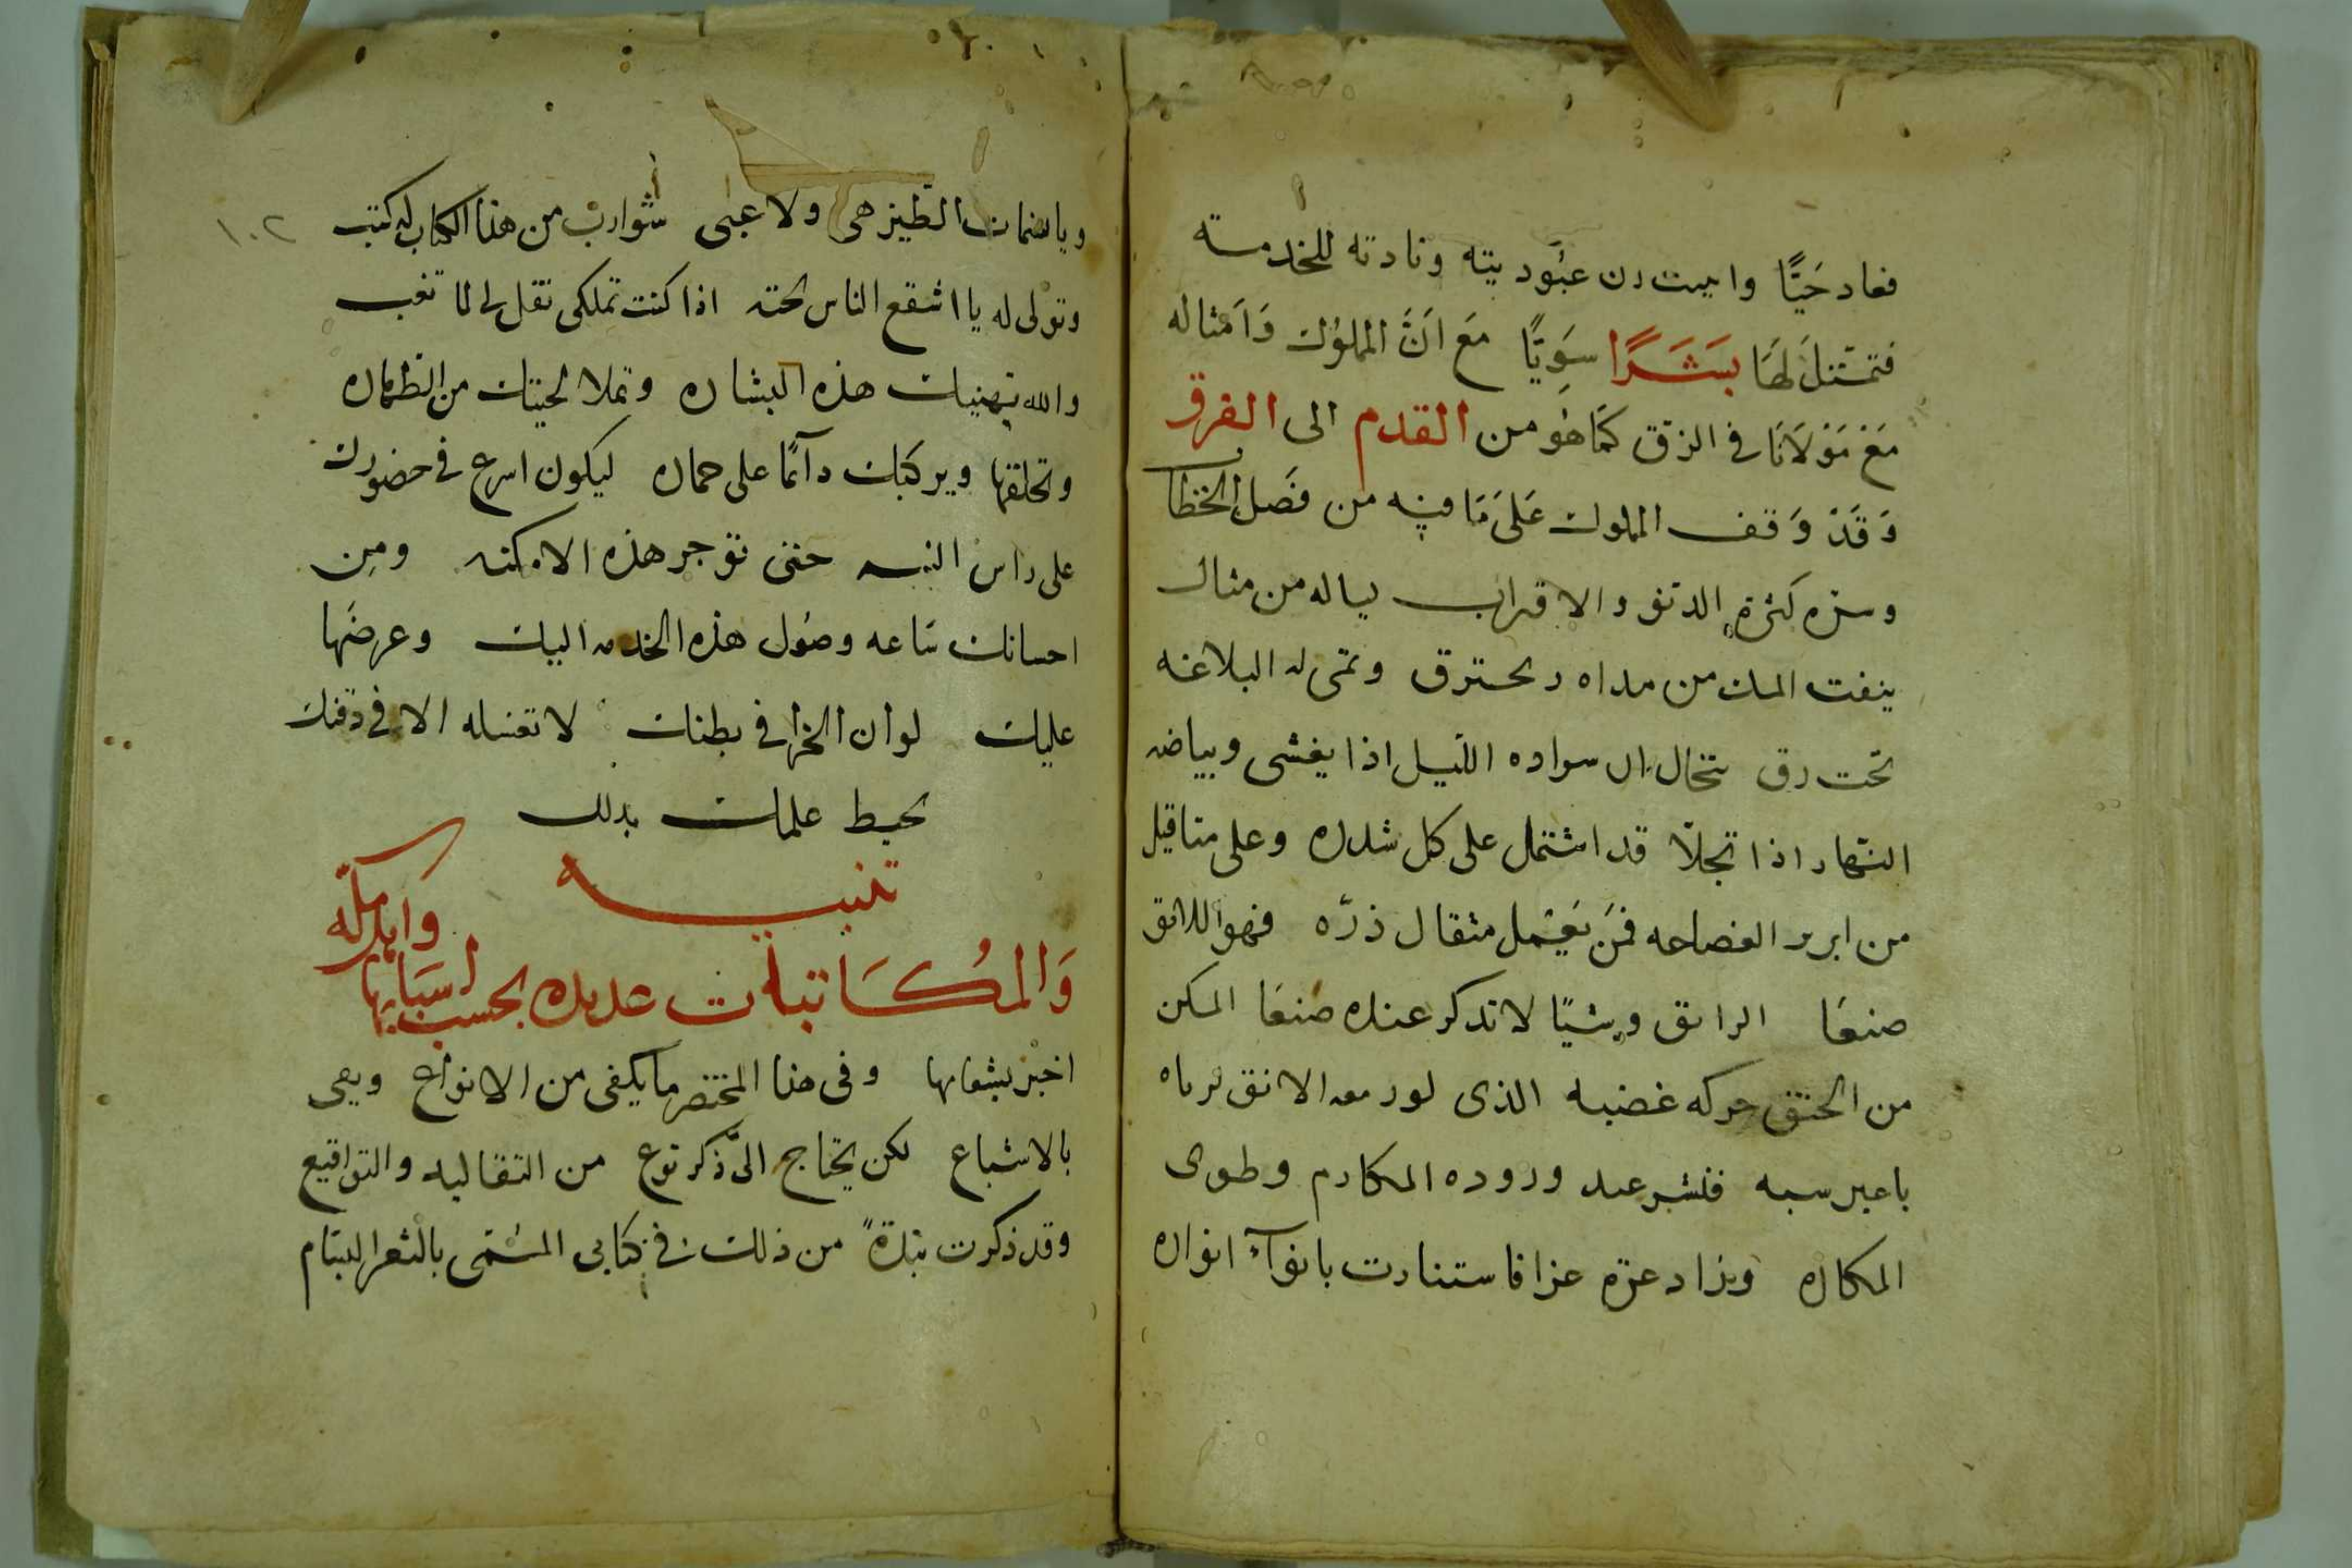 فعاد حَيًّا وا ىىت رن عبُوديته ونادته للخدمته
فتمثّلَ لهَا بَشَرًا سَوِيًّا مَع انَّ المملوُك وَامثاله
مَعْ مَوْلَانَا في الرق كَمَا هُو من القدم الى الفرق
وَقَدْ وَقف المملوك عَلىَ مَا فيه من فصَل الخطاب
وسره كثرة والاقراب ياله من مثال
ينفت المسك من مداه وتمى له البلاغه
تحت رق تخال ان سواده الليل اذا يغشى وبياضه
النهار اذا تجلّا قد اشتمل على كل شدره وعلى مثاقيل
من ابرير الفصاحه فمَن يَعْمل مثقال ذرّه فهو اللائق
صنعًا الرائق وشيًا لا تدكر عنده صنعَا المكن
من الحنق حركه غضبه الذى لو رمقه الافق لرماه
باعير سبه فنشر عند وروده المكارم وطوى
المكاره وزاد عزه عزا فاستنارت بانوآء انواره
ويا سمات الطيز هى ولا عجبى شوارب من هذا الكتاب له كتب
وتوْلى له يا اشقع الناس لحته اذا كنت تملكى تقل لى لما تغب
والله يهنيك هذه البشاره وتملا لحيتك من الطهاره
وتحلقها ويركبك دآئما على حماره ليكون اسرع فى حضورك
على راس النبه حتى توجر هذه الامكنه ومِن
احسانك سَاعه وصُول هذه الخدمه اليك وعرضَها
عليك لو ان الخرا في بطنك لا تغسله الا فى دقنك
يحيط علمك بدلك
تنبيه
وَالمُكَاتبات عديده بحسب اسبَابها وابلدكلّه
اخبر بشعابها وفى هذا المختصر ما يكفى من الانواع ويعى
بالاشباع لكن يحتاج الى ذكر نوع من التقاليد والتواقيع
وقد ذكرت نبذةً من ذلك فى كتابى المسُمّى بالثغر البسّام
١٠٢